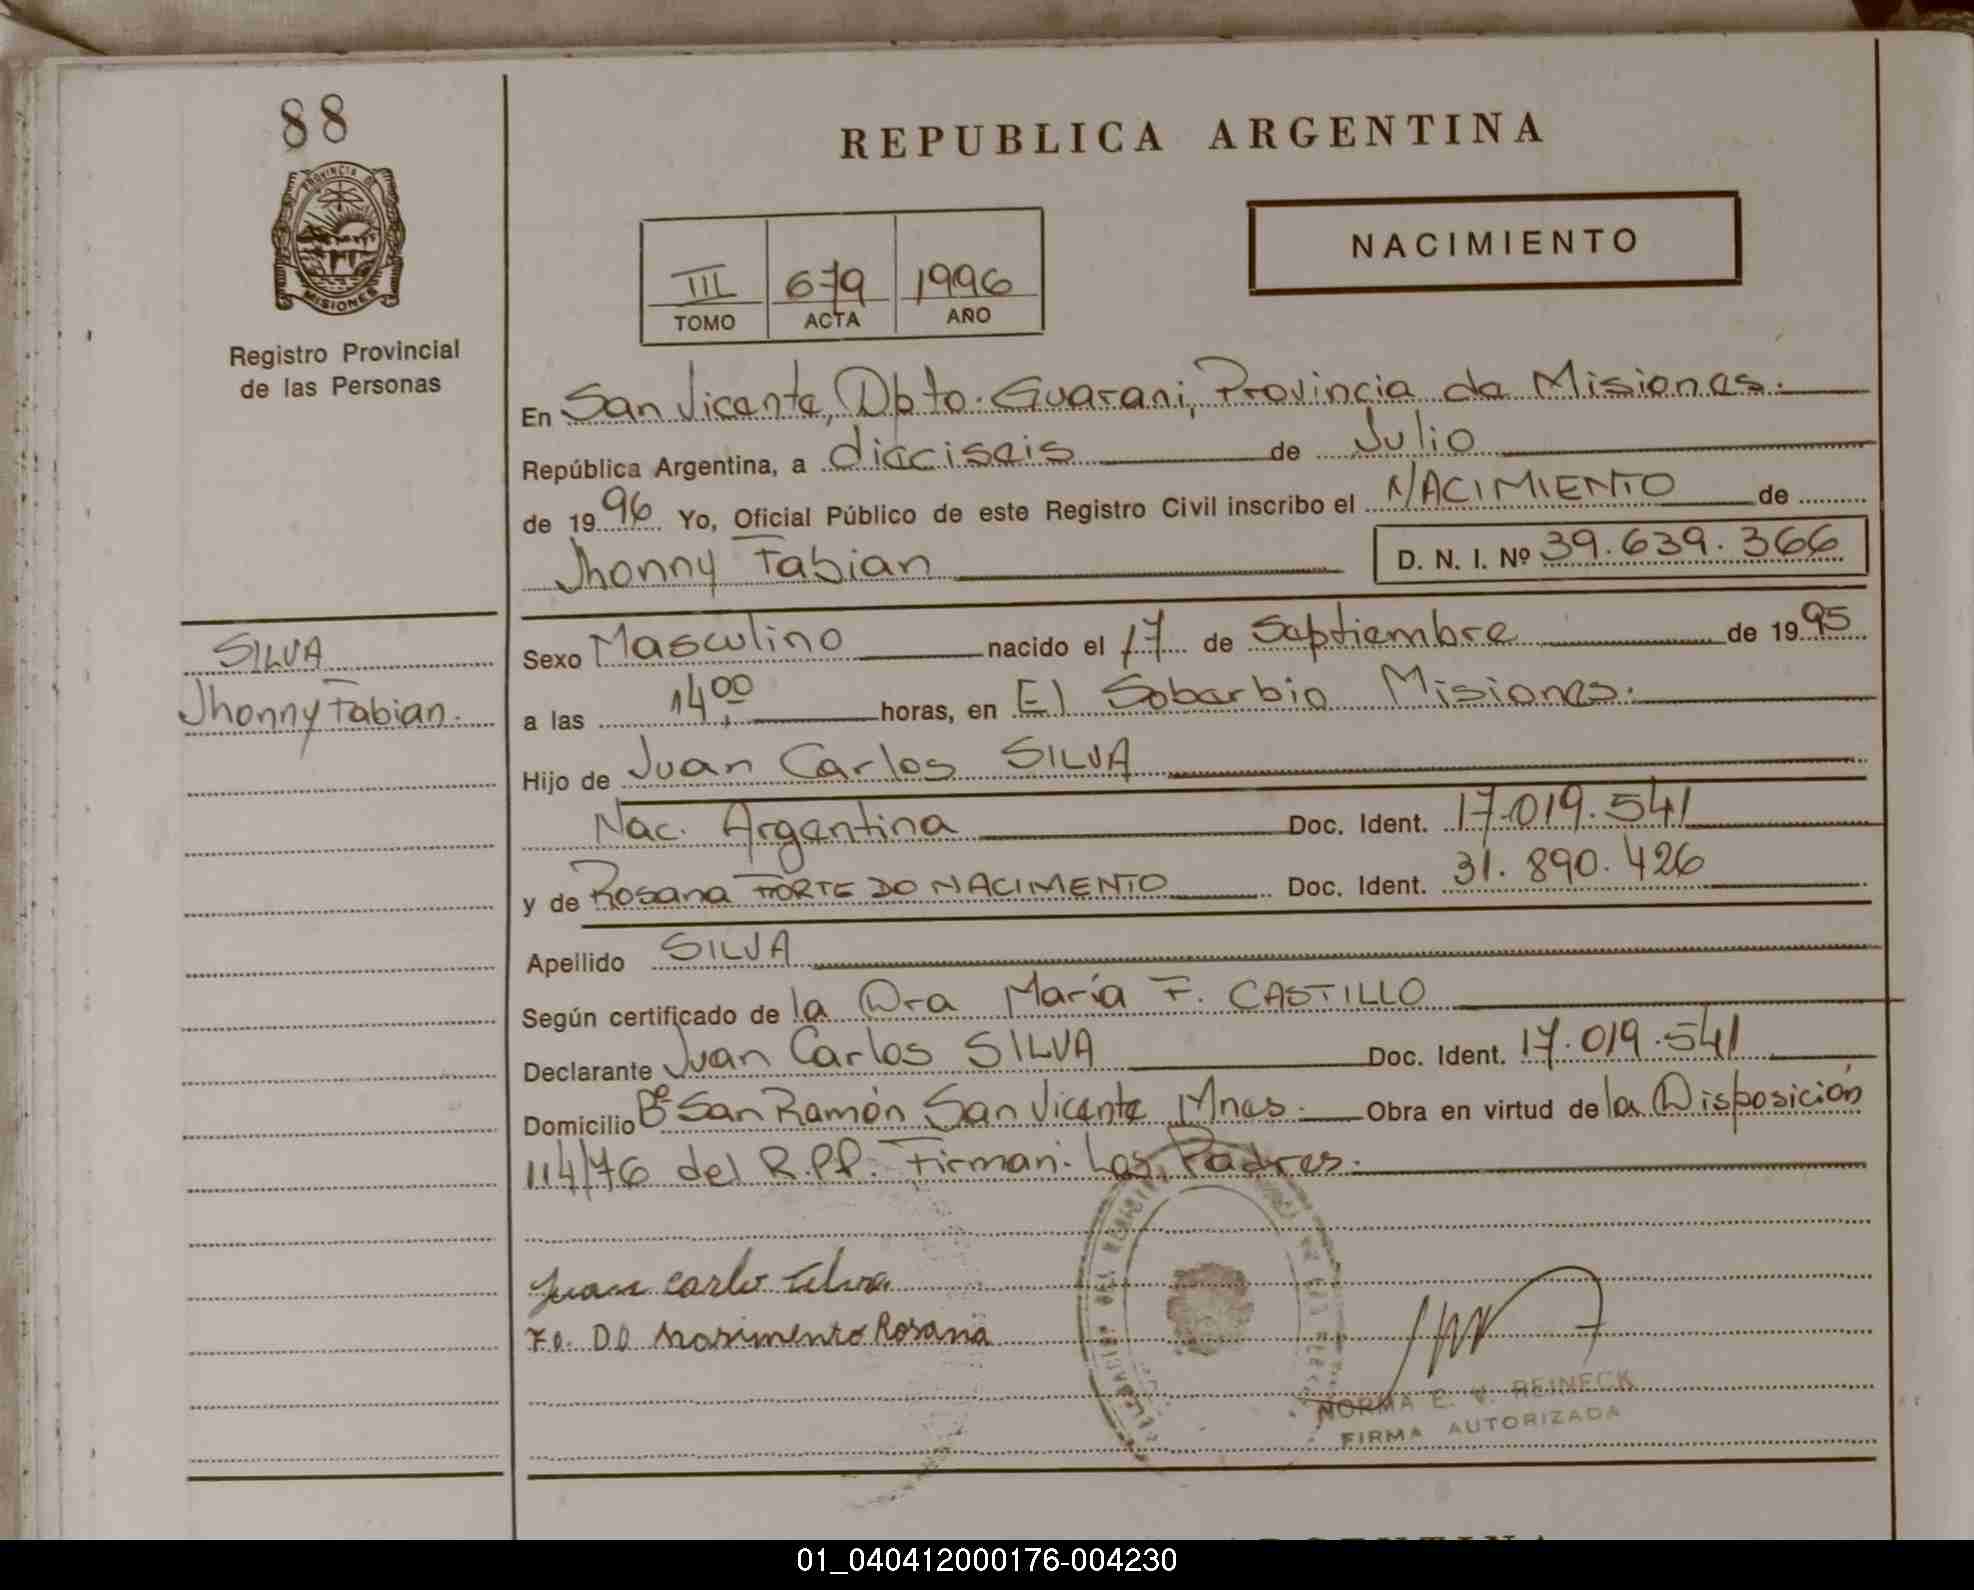 88
PROVINCIA DE
MISIONES
Registro Provincial
de las Personas
SILVA
Jhonny Fabian.
REPUBLICA ARGENTINA
NACIMIENTO
III 679 1996
TOMO ACTA AÑO
En San Vicente, Dpto. Guarani, Provincia de Misiones.
República Argentina, a dieciseis de Julio
de 1996 Yo, Oficial Público de este Registro Civil inscribo el NACIMIENTO de
Jhonny Fabian D. N. I. Nº 39.639.366
Sexo Masculino nacido el 17 de Septiembre de 1995
a las 14,00 horas, en El Soberbio Misiones.
Hijo de Juan Carlos SILVA
Nac. Argentina Doc. Ident. 17.019.541
y de Rosana FORTE DO NACIMENTO Doc. Ident. 31.890.426
Apellido SILVA
Según certificado de la Dra María F. CASTILLO
Declarante Juan Carlos SILVA Doc. Ident. 17.019.541
Domicilio Bº San Ramón San Vicente Mnes. Obra en virtud de la Disposición
114/76 del R.P.P. Firman. Los Padres.
Juan Carlo Silva
F.O. DO Nasimento Rosana
NORMA E. V. REINECK
FIRMA AUTORIZADA
ARGENTINA
01_040412000176-004230